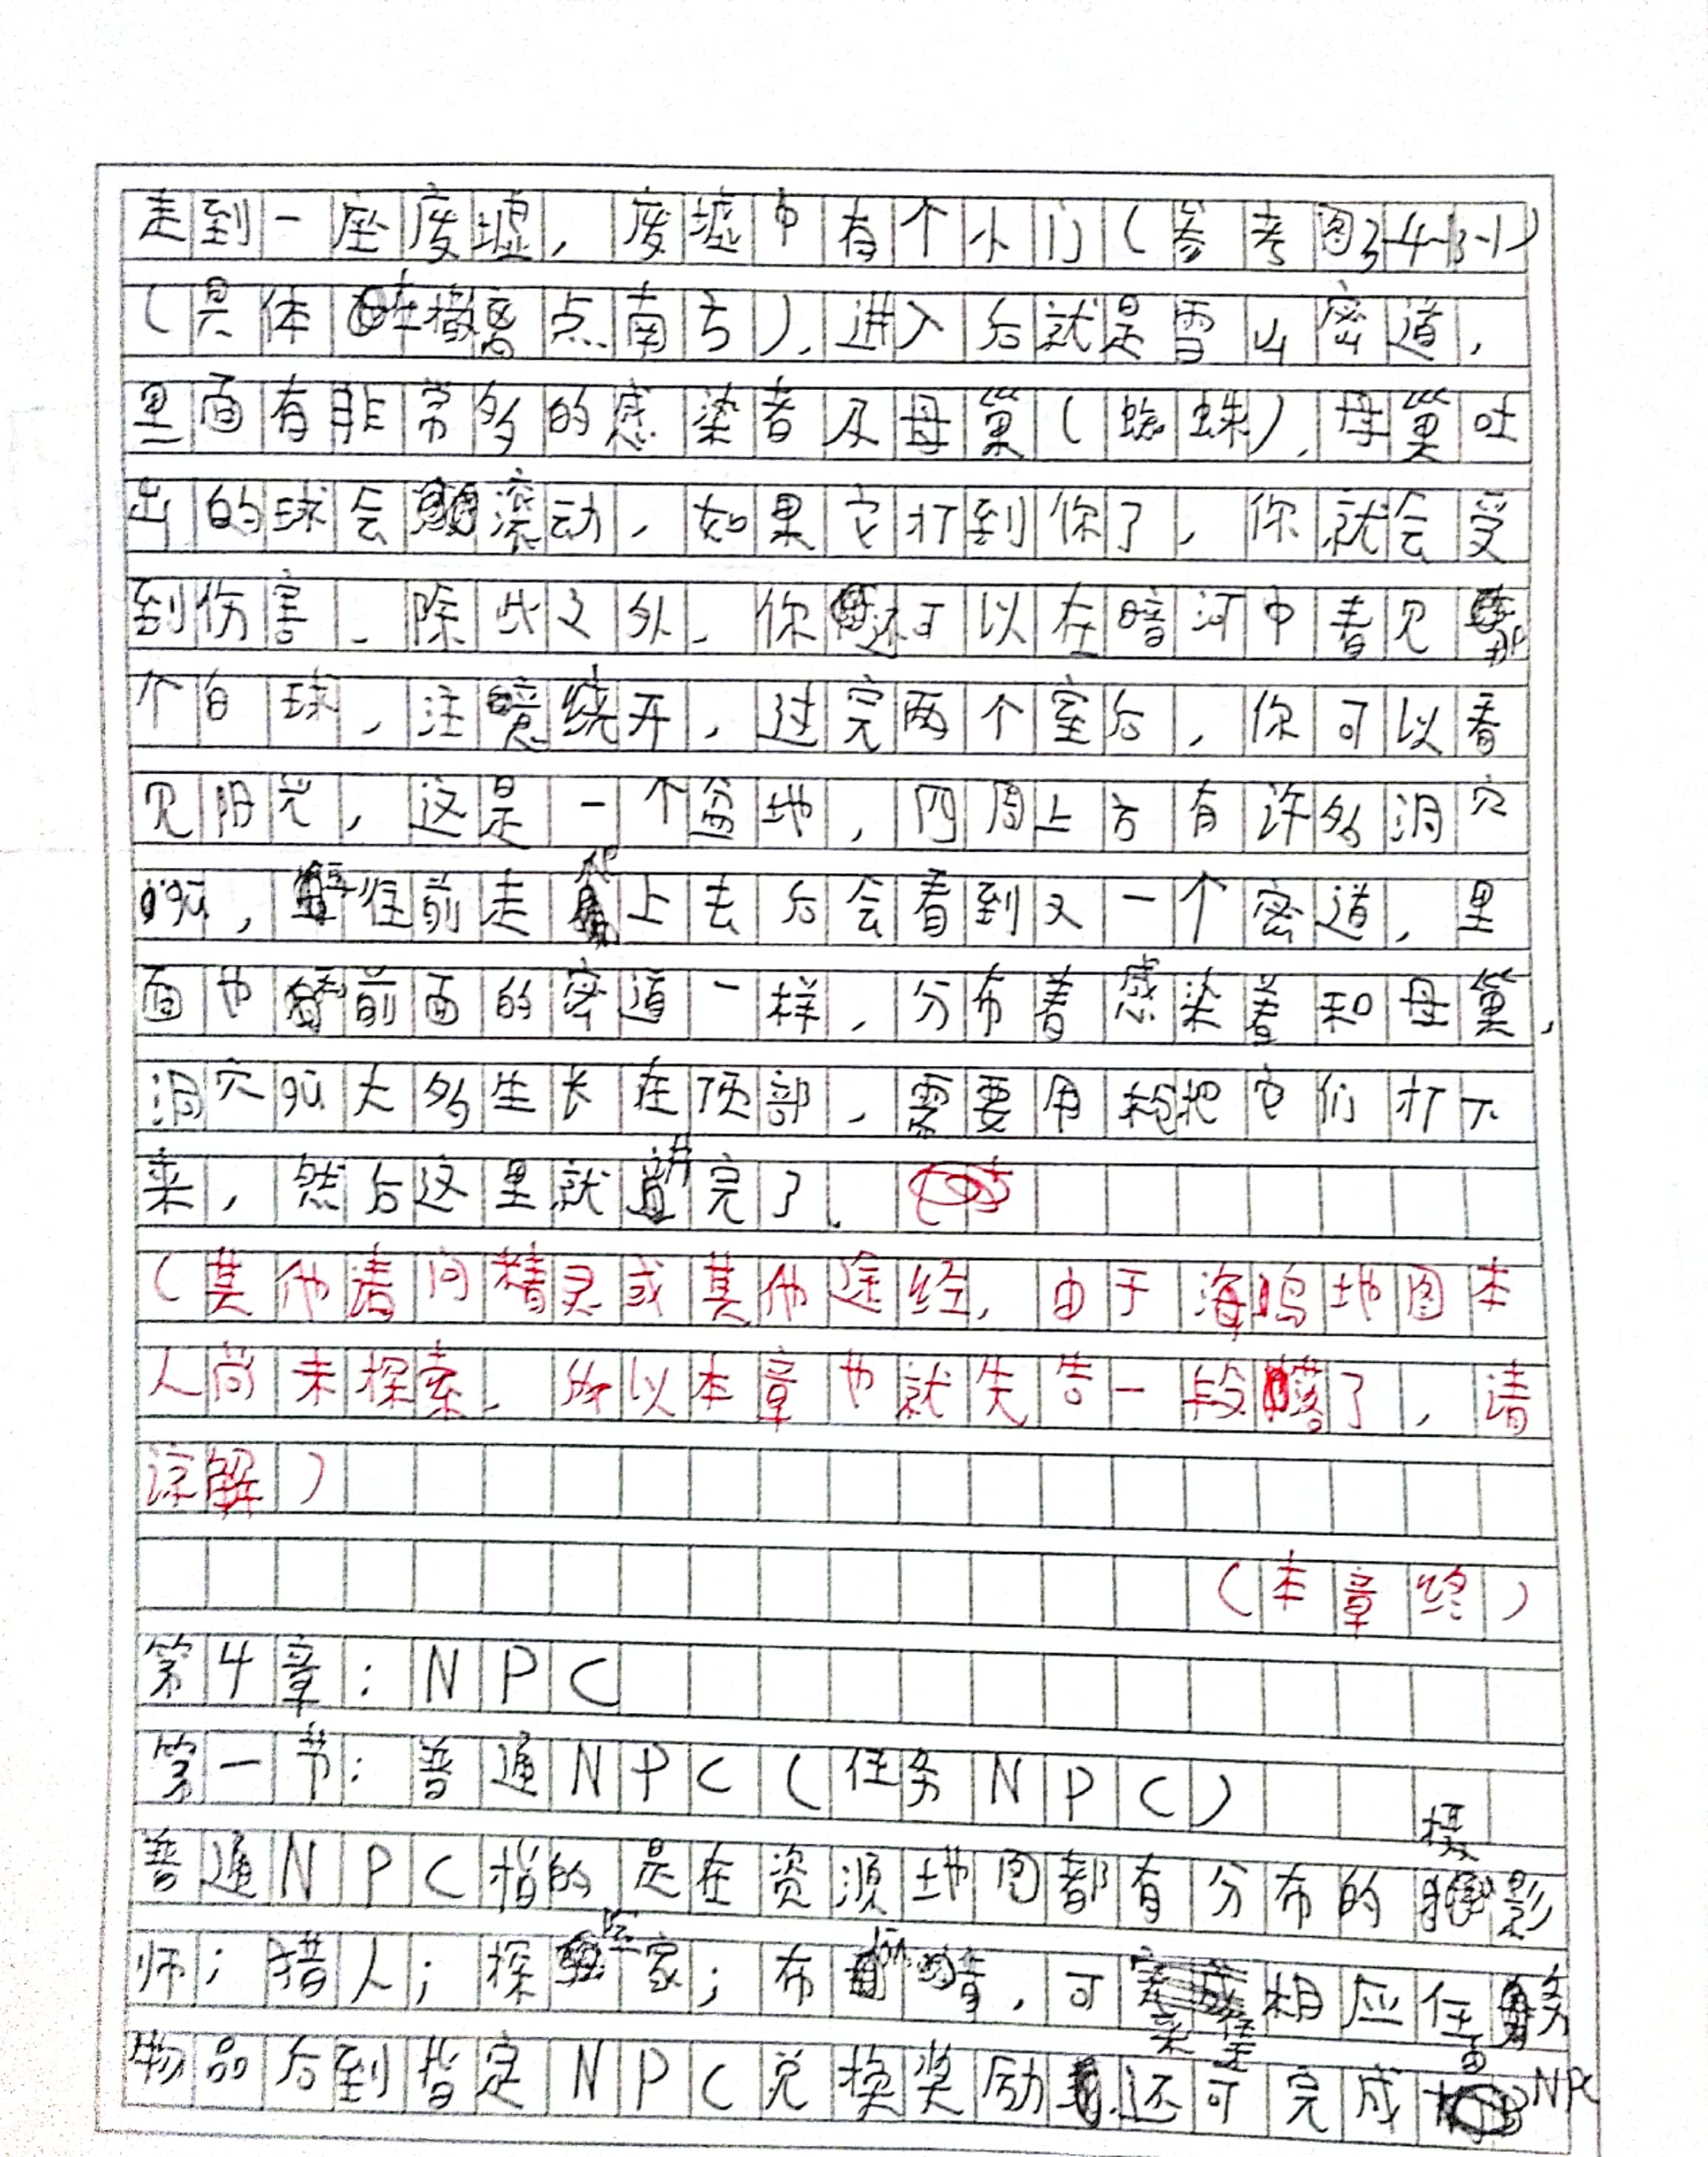 走到一座废墟，废墟中有个小门（参考图3-4-3-1）
（具体在撤离点南方）.进入后就是雪山密道，
里面有非常多的感染者及母巢（蜘蛛）.母巢吐
出的球会滚动，如果它打到你了，你就会受
到伤害.除此之外.你还可以在暗河中看见那
个白球，注意绕开，过完两个室后，你可以看
见阳光，这是一个盆地，四周上方有许多洞穴
jgū，往前走爬上去后会看到又一个密道，里
面也和前面的密道一样，分布着感染者和母巢，
洞穴gū大多生长在顶部，需要用枪把它们打下
来，然后这里就讲完了.
（其他请问精灵或其他途经，由于海岛地图本
人尚未探索，所以本章也就先告一段落了，请
谅解）
（本章终）
第4章：NPC
第一节：普通NPC（任务NPC）
普通NPC指的是在资源地图都有分布的摄影
师；猎人；探险家；布 ，可采集相应任务
物品后到指定NPC兑换奖励.还可完成 NPC